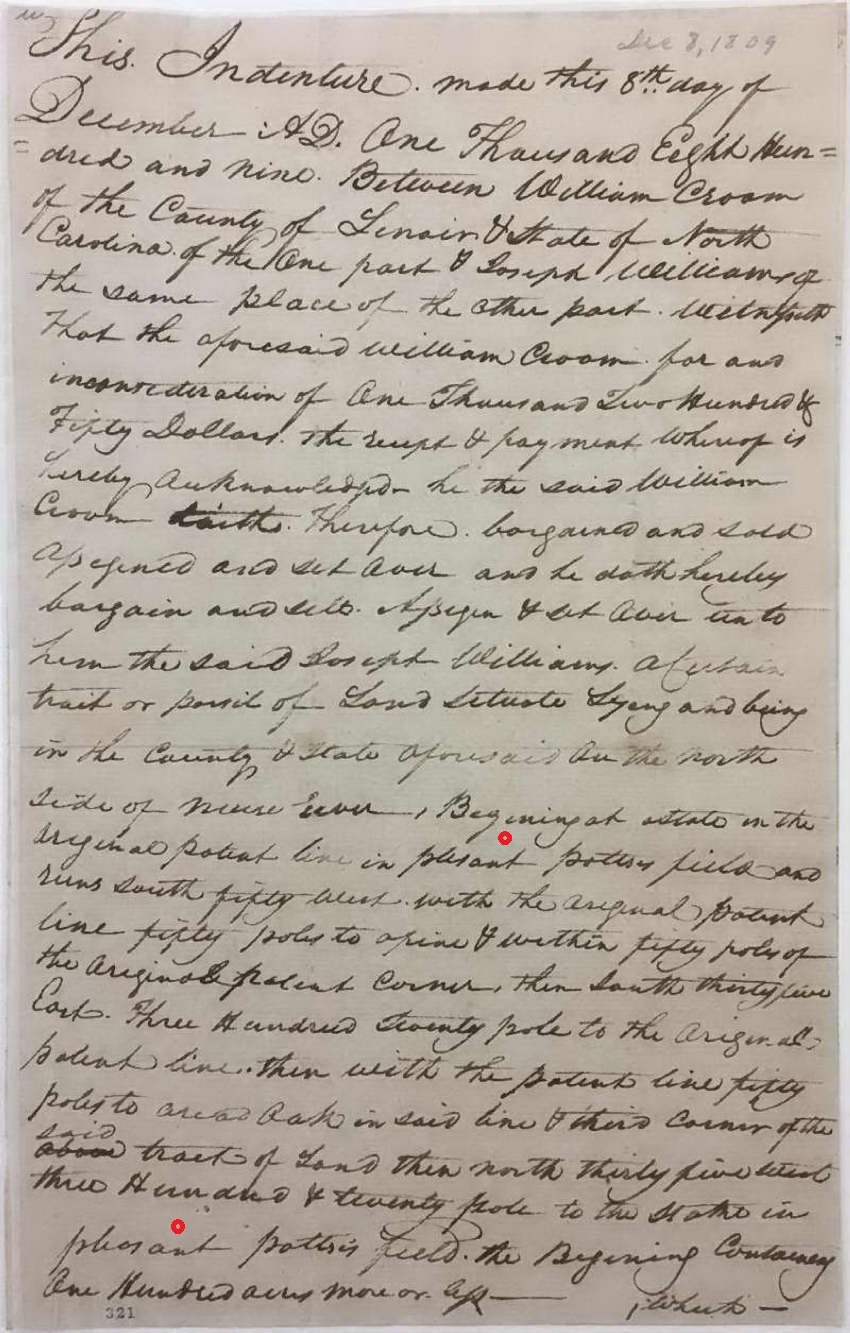 Dec 8, 1809
This. Indenture. made this 8th.. day of
December A.D. One Thousand Eight Hun=
=dred and nine. Between William Croom
of the County of Lenoir & State of North
Carolina. of the One part & Joseph Williams of
the same place of the other part. Witnesseth
That the aforesaid William Croom for and
inconsideration of One Thousand Two Hundred &
Fifty Dollars. the recept & payment whereof is
hereby Acknowledged he the said William
Croom hath. Therefore. bargained and sold
Assegined and set Over and he doth hereby
bargain and sell. Assegn & set Over unto
him the said Joseph Williams. a Certain
trait or parsil of Land setuate Lyeng and being
in the County & State aforesaid On the north
side of Neuse River, Begining at a stake in the
original patent line in plesant potters field and
runs south fifty West. with the Original patent
line fifty poles to a pine & within fifty poles of
the Original patent Corner, then South thirty five
East. Three Hundred twenty pole to the Original
patent line. then with the patent line fifty
poles to a read Oak in said line & third Corner of the
said
above tract of Land then north thirty five West
three Hundred & twenty pole to the stake in
pleasant potters field. the Begining Containeng
One Hundred acres more or less
321